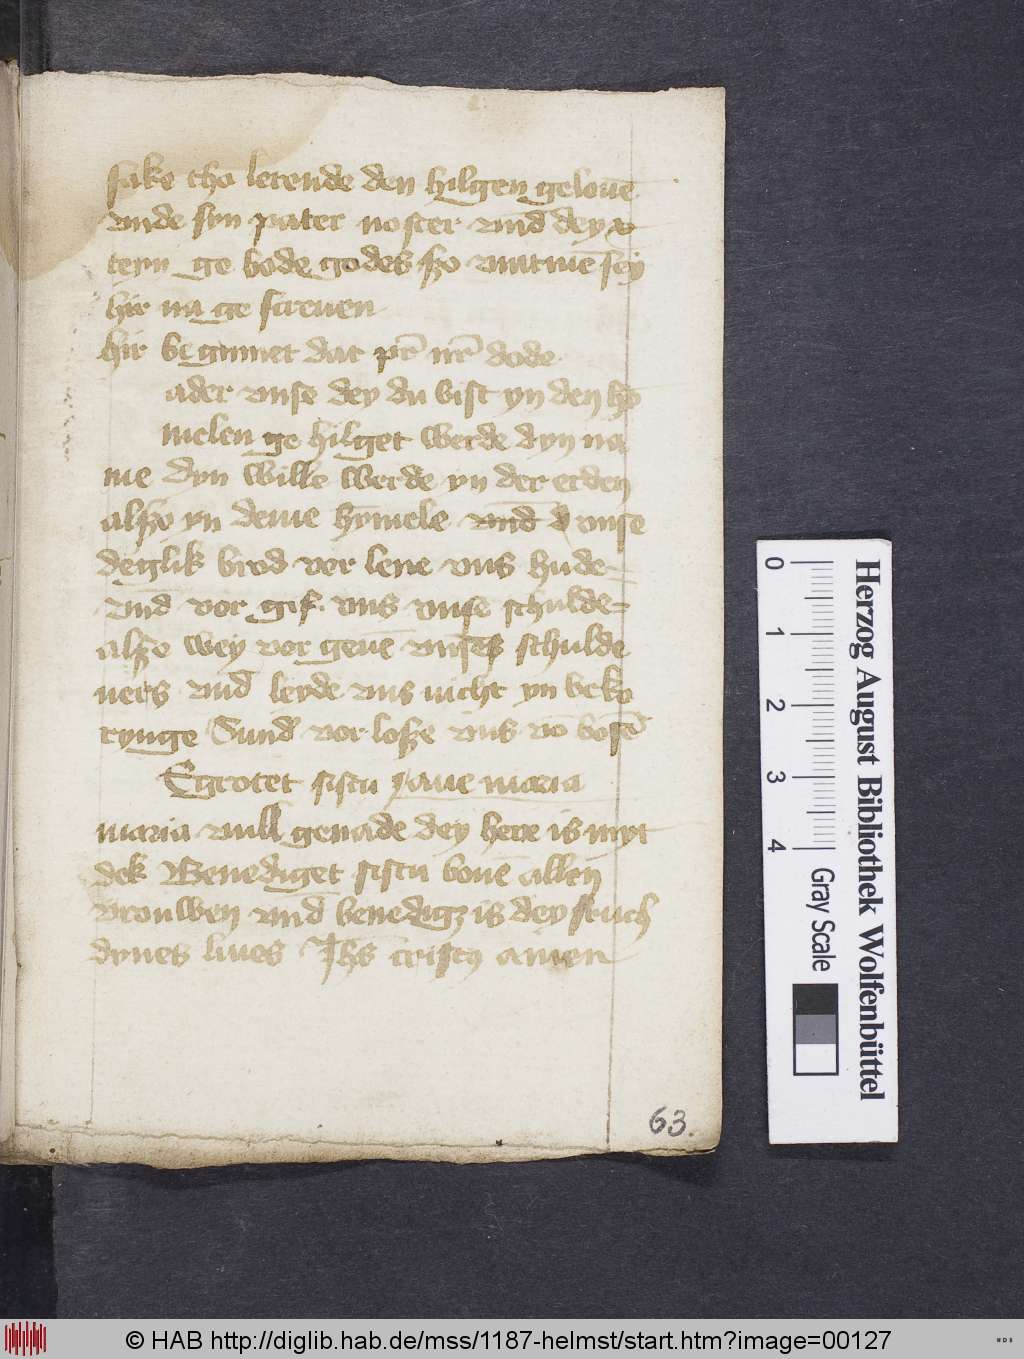 sake tho lerende den hilgen gelouē
vnde syn pater noster vnd dey x
teyn ge bode godes szo vmme sey
hir na ge screuen
hir begunnet dat pr̄ nr̄ dode
ader vnse dey du bist yn den hy
melen ge hilget werde dyn na
me dyn wille werde yn der erden
alsze yn deme hymele vnd vnse
deglik brod vor lene vns hude
vnd vor gif vns vnse schulde
alsze wey vor geuē vnses schulde
ners vnd leyde vns nicht yn beko
rynge Sund vor losze vns vō bosē
Egrotet sistu aue maria
maria vull genade dey here is myt
dek Benediget sistu bouē allen
vrouwen vnd is dey fruch
dynes liues Jhs cristus amen
63.
Herzog August Bibliothek Wolfenbüttel
0 1 2 3 4
Gray Scale
© HAB http://diglib.hab.de/mss/1187-helmst/start.htm?image=00127